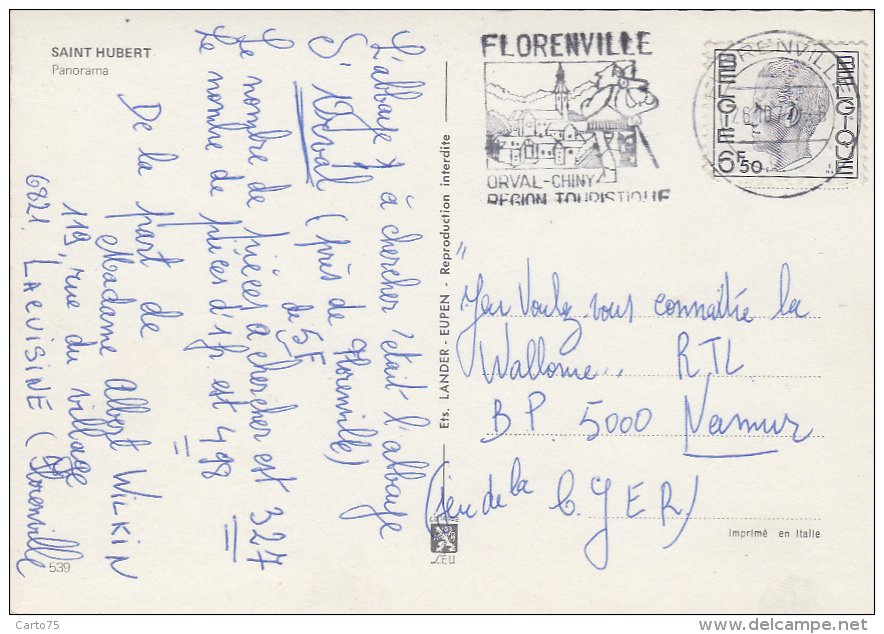 SAINT HUBERT
Panorama
L'abbaye à chercher était l'abbaye
d'Orval (près de Florenville)
de 5F
Le nombre de pièces à chercher est 327
Le nombre de pièces d'1fr est 498
De la part de
Madame Albert WILKIN
119, rue du village
6821 LACUISINE (Florenville
539
Ets. LANDER - EUPEN - Reproduction interdite
LEU
FLORENVILLE
ORVAL-CHINY
REGION TOURISTIQUE
FLORENVILLE
BELGIE
BELGIQUE
6F50
"Jeu Voulez-vous connaître la
Wallonie.. RTL
BP 5000 Namur
(jeu de la C.G.E.R.)
Imprimé en Italie
Carto75
www.delcampe.net